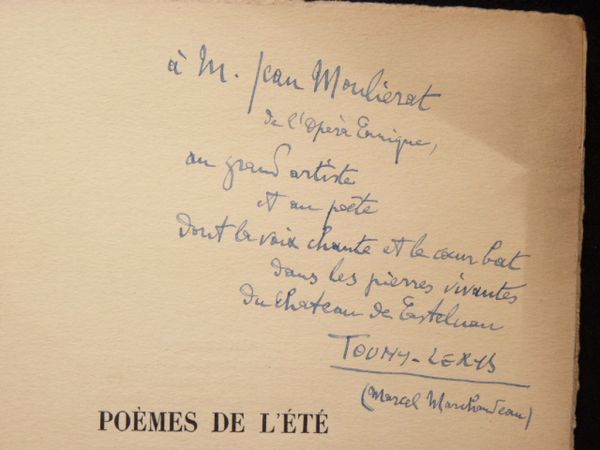 à M. Jean Mouliérat
de l'Opéra Comique,
au grand artiste
et au poète
dont la voix chante et le cœur bat
dans les pierres vivantes
du chateau de Castelnau
TOUNY-LERYS
(Marcel Marchandeau)
POÈMES DE L'ÉTÉ